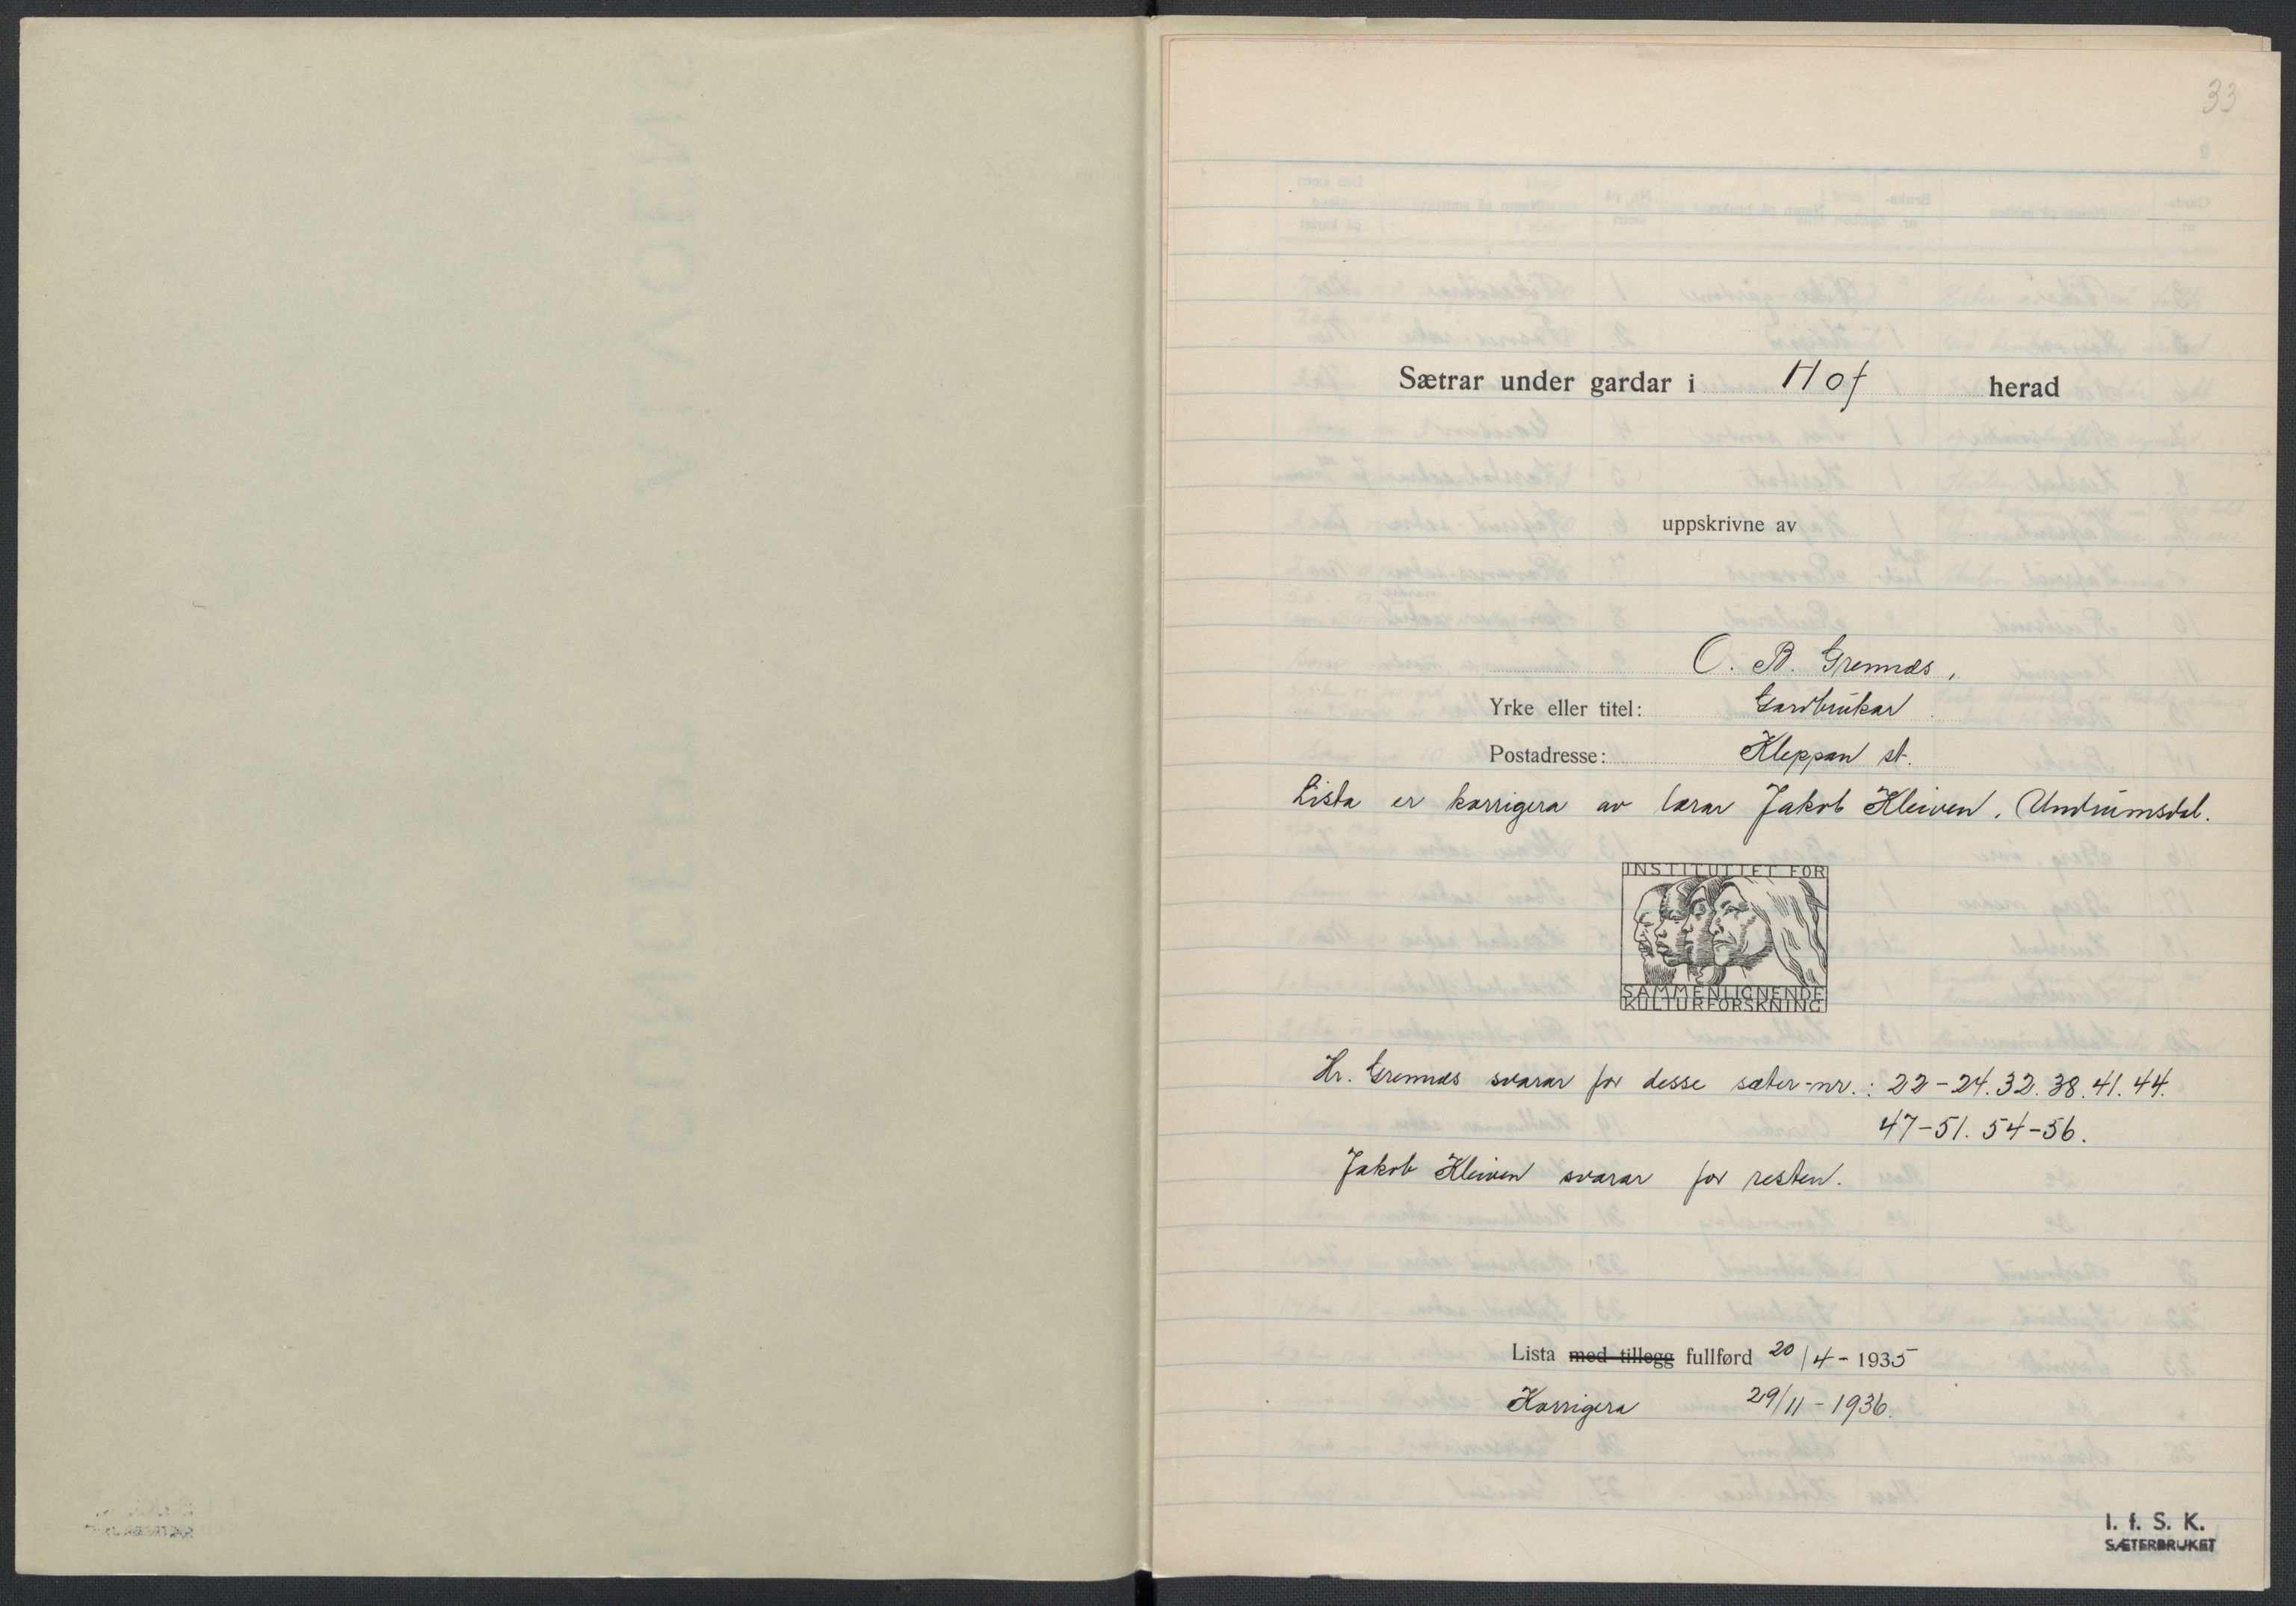 33
Sætrar under gardar i Hof herad
uppskrivne av
O. B. Grennes,
Yrke eller titel: Gardbrukar.
Postadresse: Kleppan st.
Lista er korrigera av lærar Jakob Kleiven. Undrumsdal.
INSTITUTTET FOR
SAMMENLIGNENDE
KULTURFORSKNING
Hr. Grennes svarar for desse sæter-nr.: 22-24. 32. 38. 41. 44.
47-51. 54-56.
Jakob Kleiven svarar for resten.
Lista med tillegg fullførd 20/4 - 1935
Korrigera 29/11 - 1936.
I. f. S. K.
SÆTERBRUKET